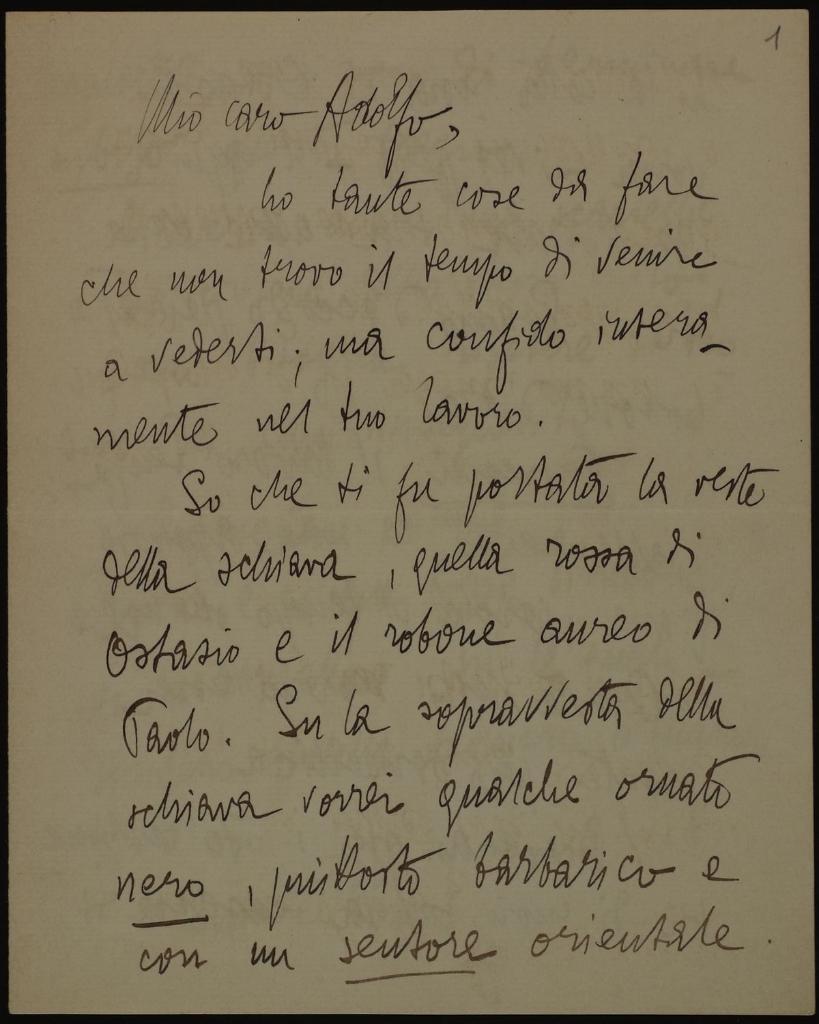 1
Mio caro Adolfo,
ho tante cose da fare
che non trovo il tempo di venire
a vederti; ma confido intera-
mente nel tuo lavoro.
So che ti fu portata la veste
della schiava, quella rossa di
Ostasio e il robone aureo di
Paolo. Su la sopravvesta della
schiava vorrei qualche ornato
nero, piuttosto barbarico e
con un sentore orientale.